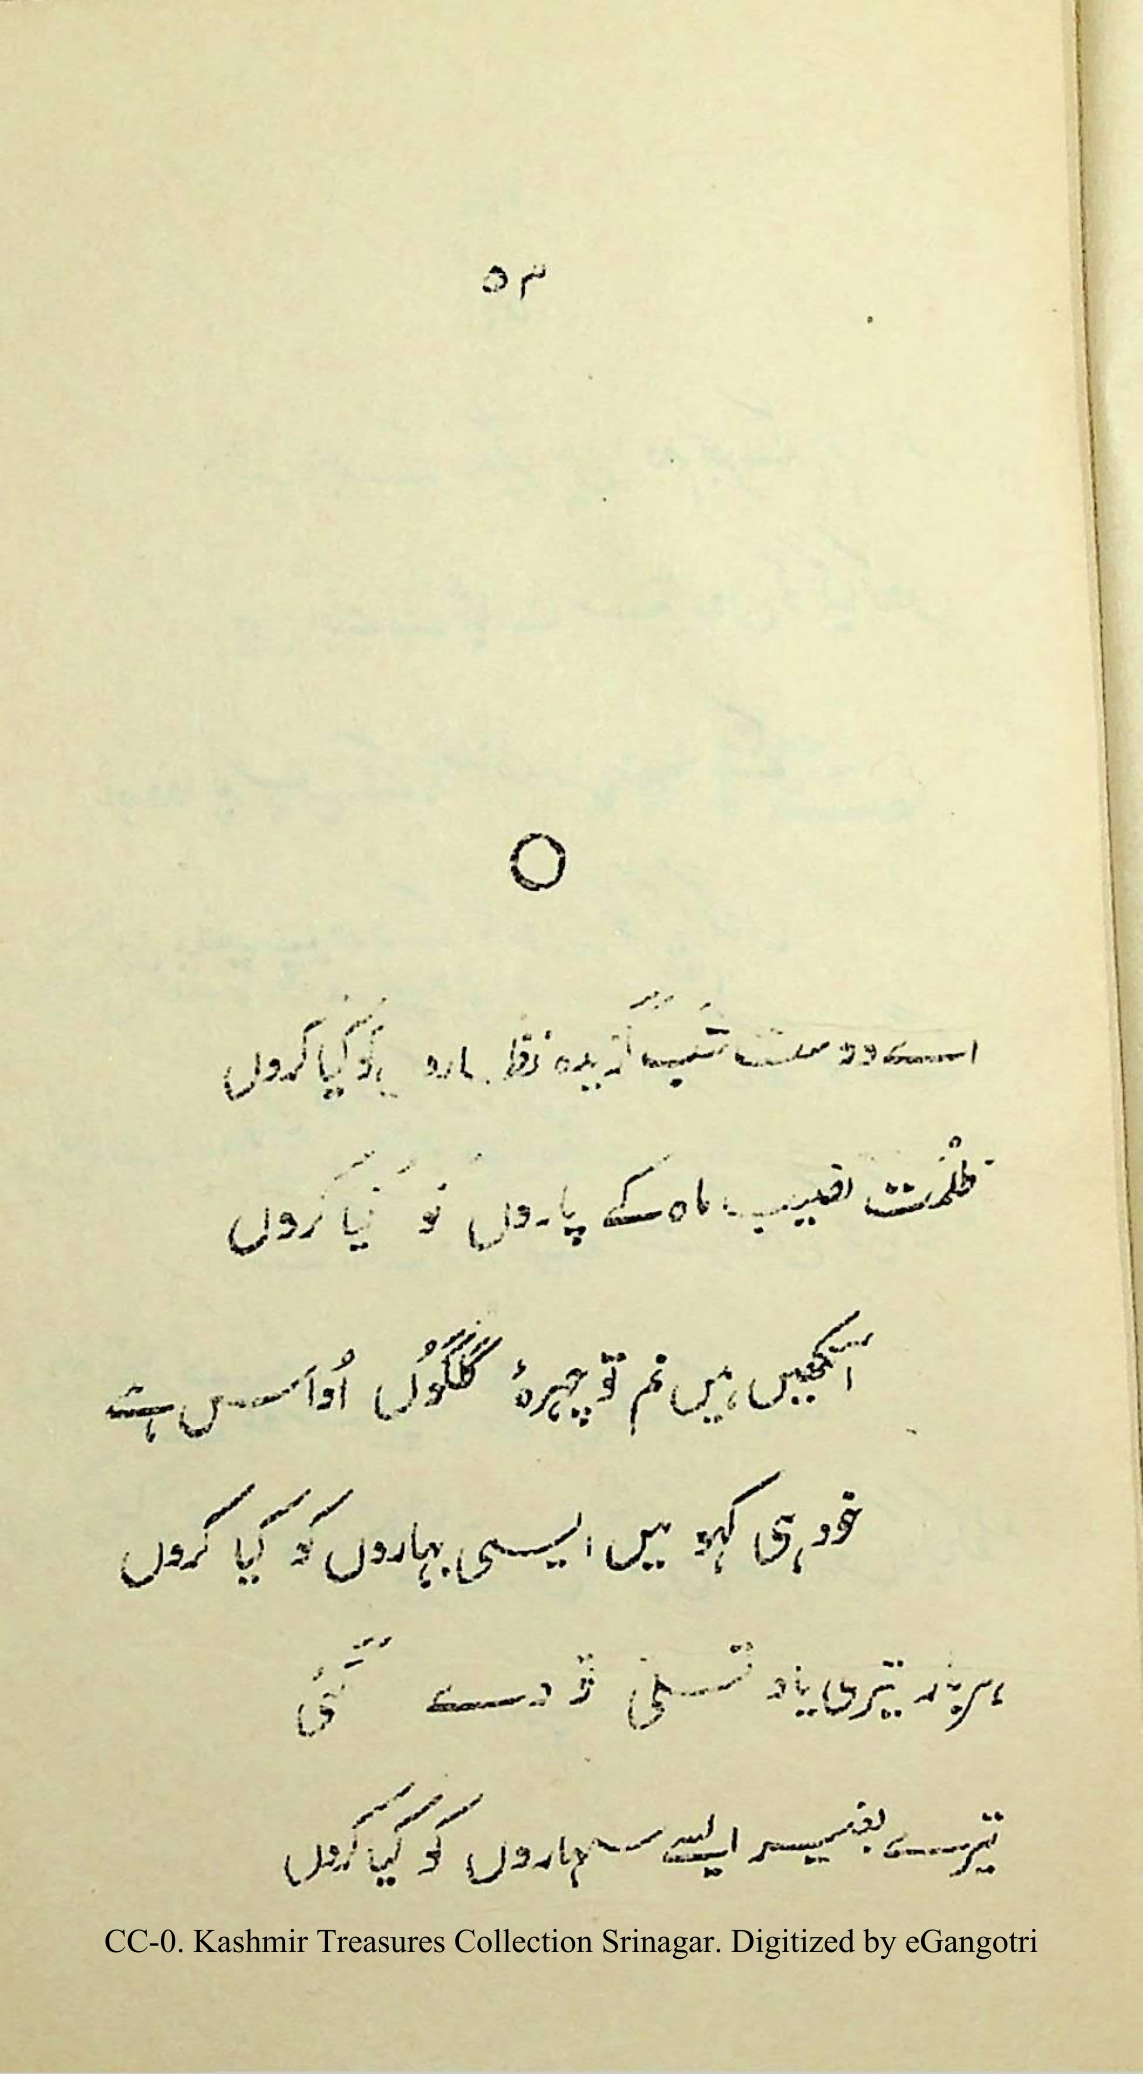 ۵۳
اے دوست شب گزیدہ نظاروں کو کیا کروں
ظلمت نصیب ماہ کے پاروں کو کیا کروں
آنکھیں ہیں نم تو چہرۂ گلگوں اُداس ہے
خود ہی کہو میں ایسی بہاروں کو کیا کروں
ہر بار تیری یاد تسلی تو دے گئی
تیرے بغیر ایسے سہاروں کو کیا کروں
CC-0. Kashmir Treasures Collection Srinagar. Digitized by eGangotri